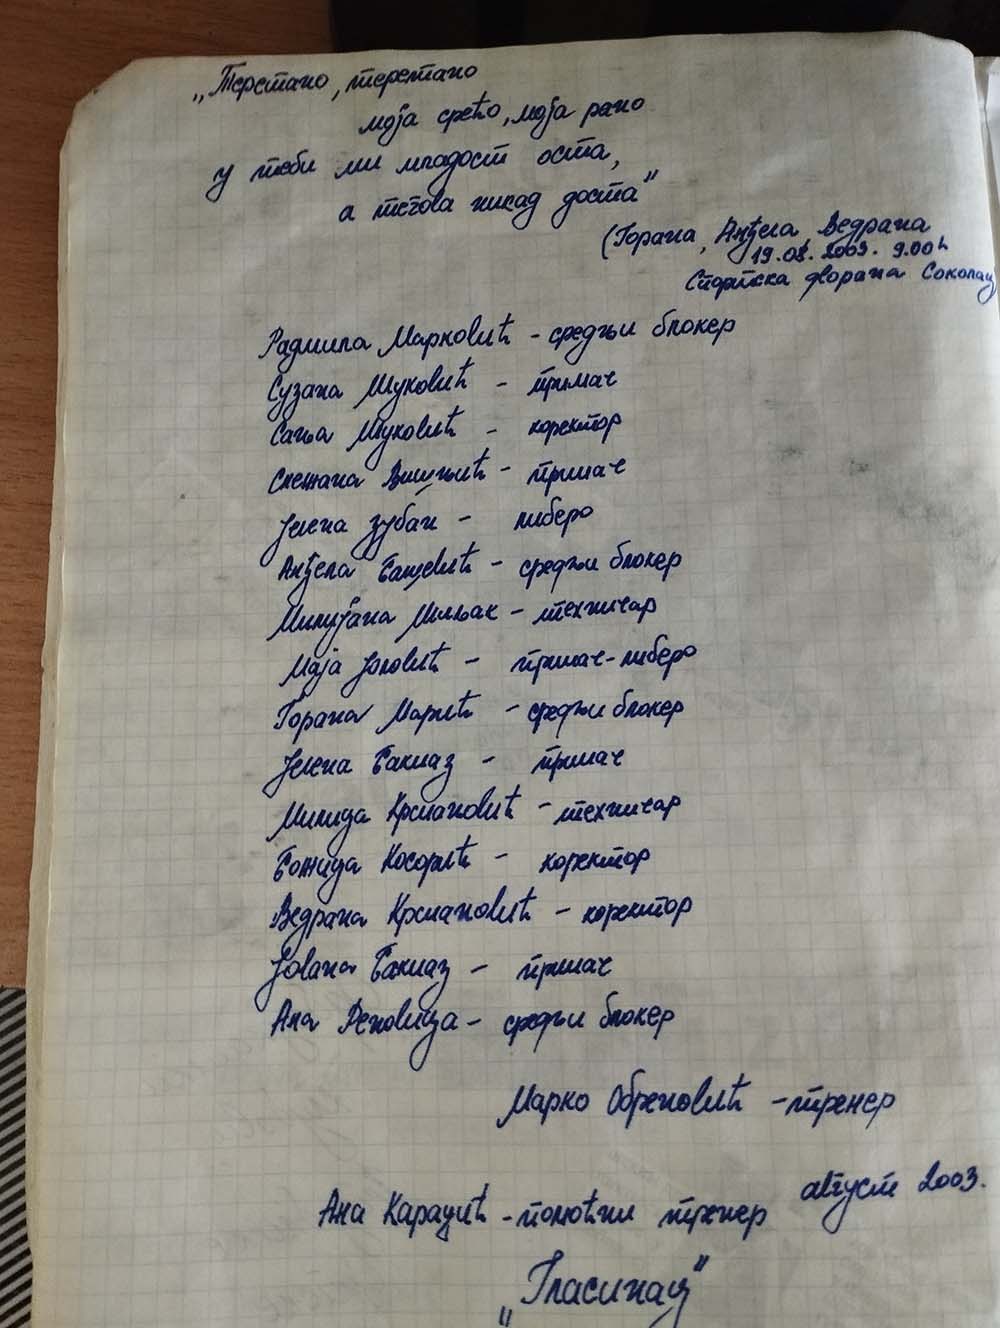 „Теретано, теретано
моја срећо, моја рано
у теби ми младост оста,
а тегова никад доста"
(Горана, Анђела Ведрана
19.08. 2003. 9.00h
Спортска дворана Соколац
Радмила Марковић - средњи блокер
Сузана Шуковић - примач
Сања Шуковић - коректор
Снежана Вишњић - примач
Јелена Зубан - либеро
Анђела Бајевић - средњи блокер
Милијана Миљак - техничар
Маја Јоловић - примач-либеро
Горана Марић - средњи блокер
Јелена Бакмаз - примач
Милица Крсмановић - техничар
Божица Косорић - коректор
Ведрана Крсмановић - коректор
Јована Бакмаз - примач
Ана Реновица - средњи блокер
Марко Обреновић - тренер
Ана Караџић - помоћни тренер
август 2003.
„Гласинац"